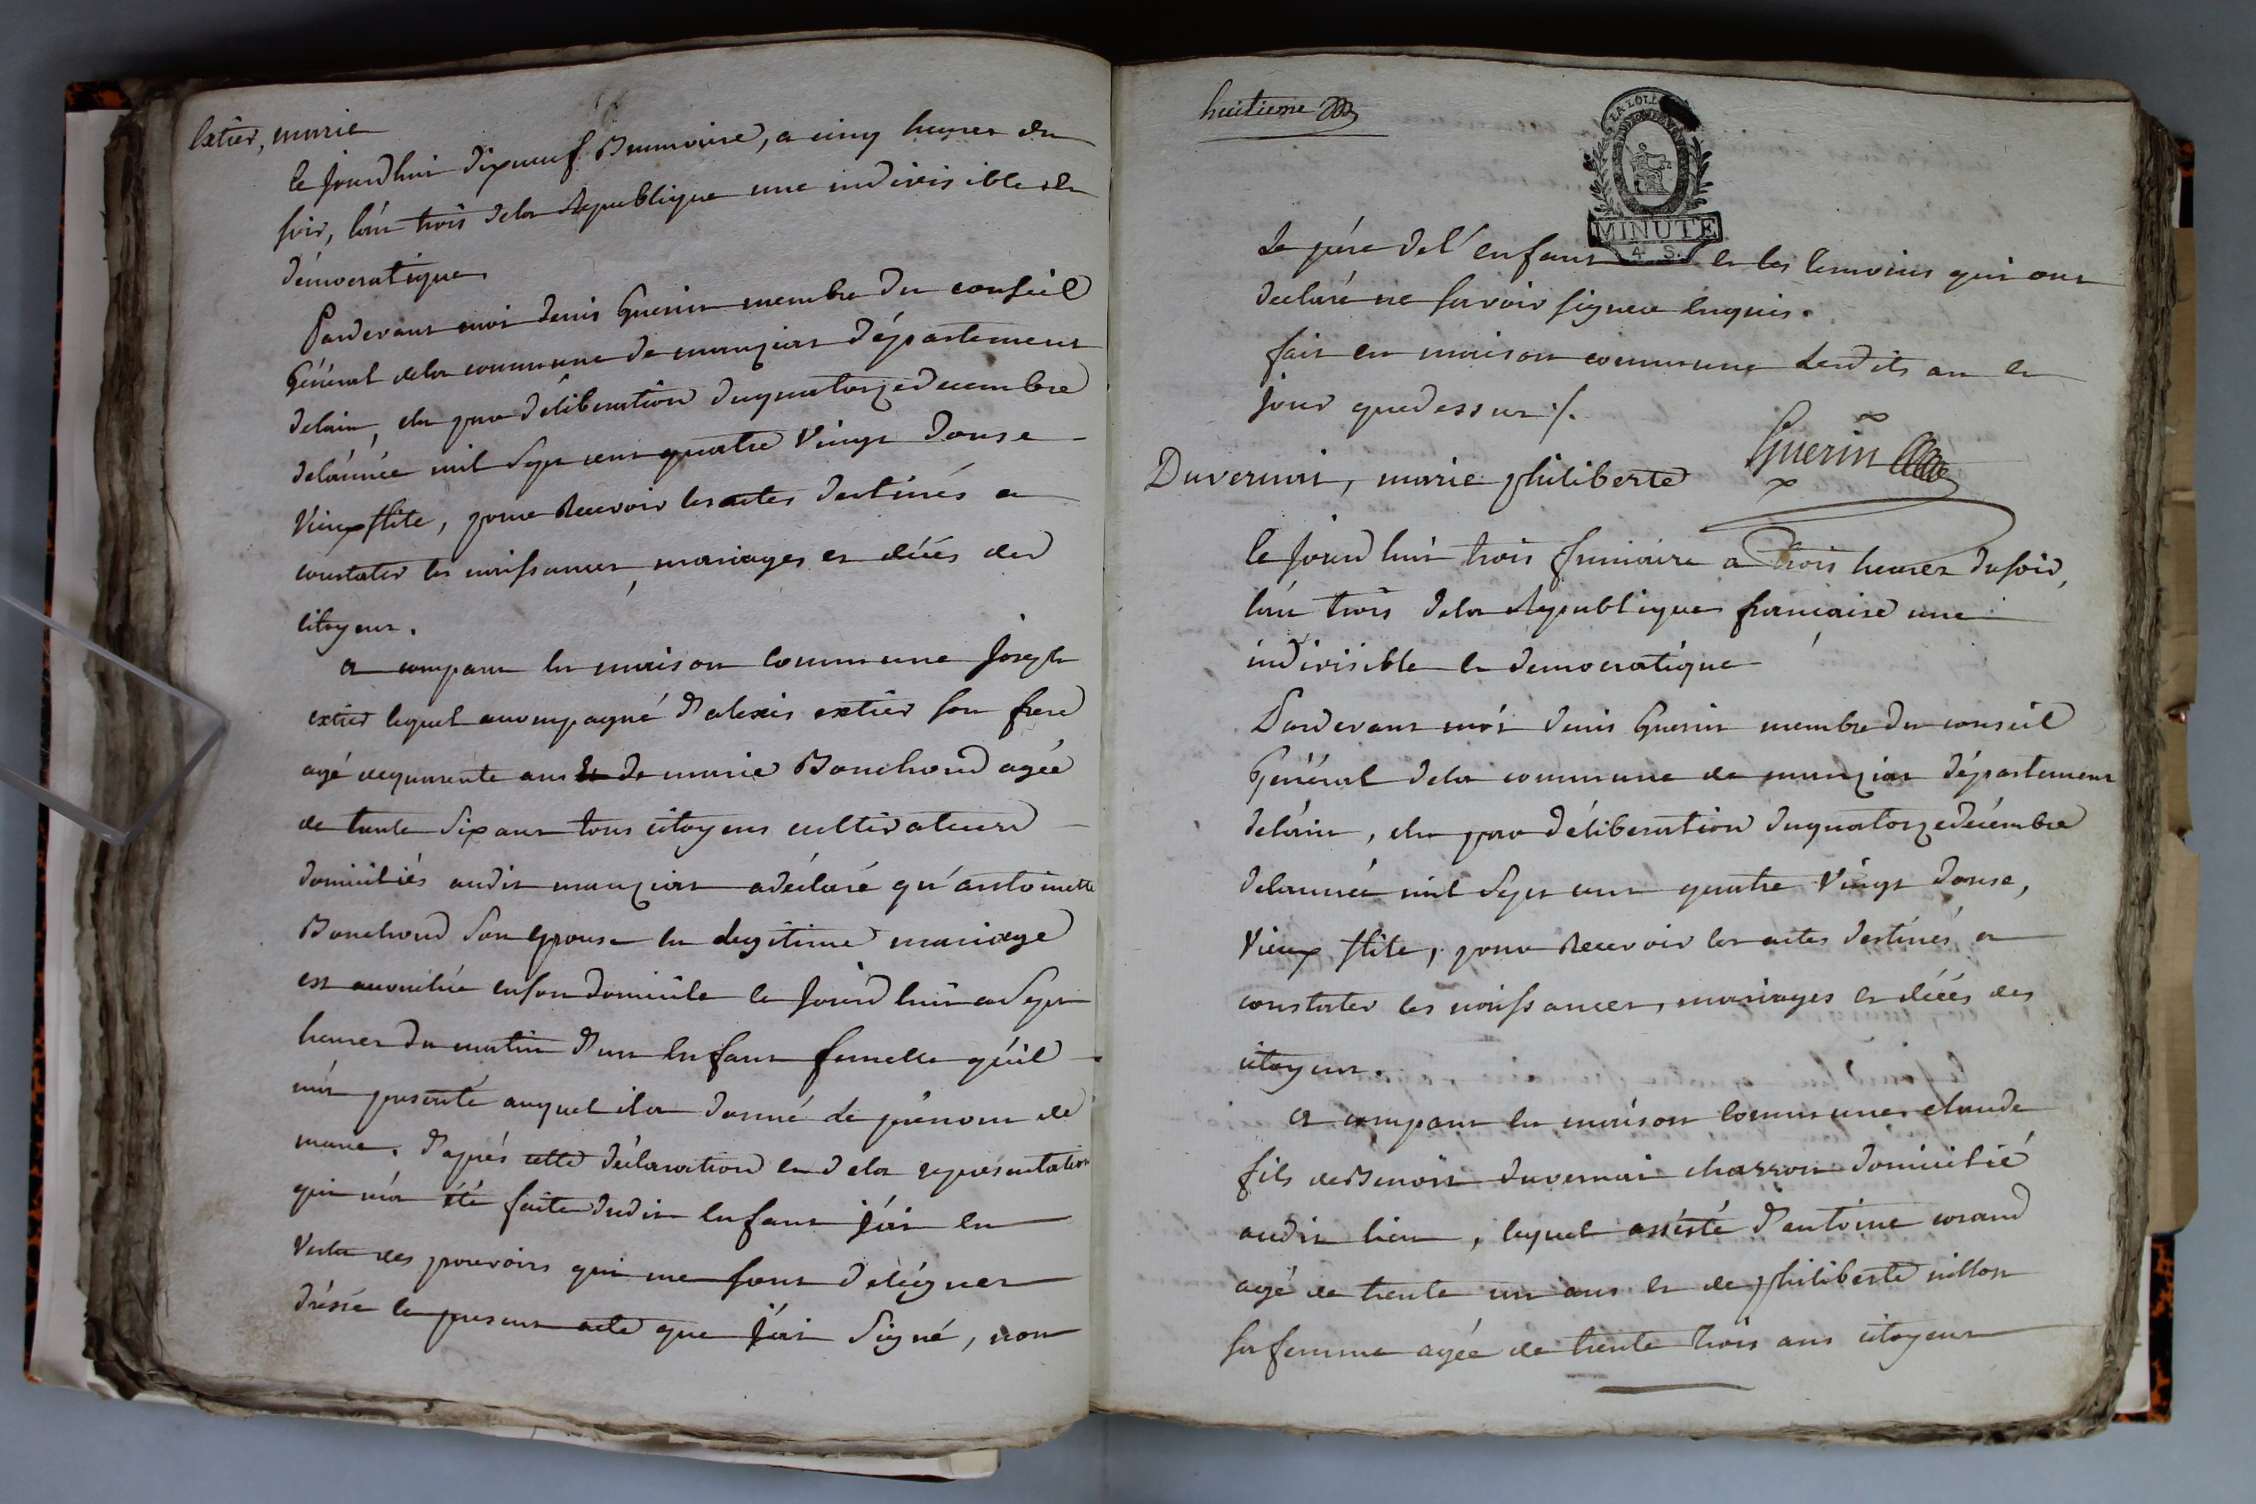 Extier, marie
Ce jourdhui dixneuf Brumaire, a cinq heures du
soir, l'an trois dela Republique une indivisible et
démocratique
Pardevant moi denis Guerin membre du conseil
Général dela commune de manziat département
delain, elu par délibération duquatorzedecembre
delannée mil sept cent quatre vingt douse
vieuxstile, pour recevoir lesactes destinés a
constater les naissances, mariages et décés des
citoyens.
a comparu en maison commune joseph
extier lequel accompagné d'alexis extier son frere
agé dequarente ans et de marie Bonchond agée
de trente six ans tous citoyens cultivateurs
domiciliés audit manziat adéclaré qu'antoinette
Bonchond son epouse en legitime mariage
est accouchée enson domicile ce jourd'hui a sept
heures du matin d'un enfant femelle qu'il
m'a presenté auquel il a donné le prénom de
marie. d'après cette déclaration et dela représentation
qui m'a été faite dudit enfant j'ai en
vertu des pouvoirs qui me sont délégues
drésse le present acte que j'ai signé, non
huitieme
LA LOI
MINUTE
4. S.
Le pére del'enfant et les temoins qui ont
declaré ne savoir signer enquis.
fait en maison commune lesdits an et
jour quedessus ./.
Guerin
Duvernai, marie philiberte
Ce jourd'hui trois frimaire a trois heures dusoir,
l'an trois dela Republique francaise une
indivisible et democratique
Pardevant moi denis Guerin membre du conseil
Général dela commune de manziat département
delain, elu par délibération duquatorzedécembre
delannée mil sept cent quatre vingt douse,
vieux stile, pour recevoir les actes destinés a
constater les naissances, mariages et décés des
citoyens.
a comparu en maison commune claude
fils deBenoit duvernai charron domicilié
audit lieu, lequel assisté d'antoine corand
agé de trente un ans et de philiberte nillon
sa femme agée de trente trois ans citoyens